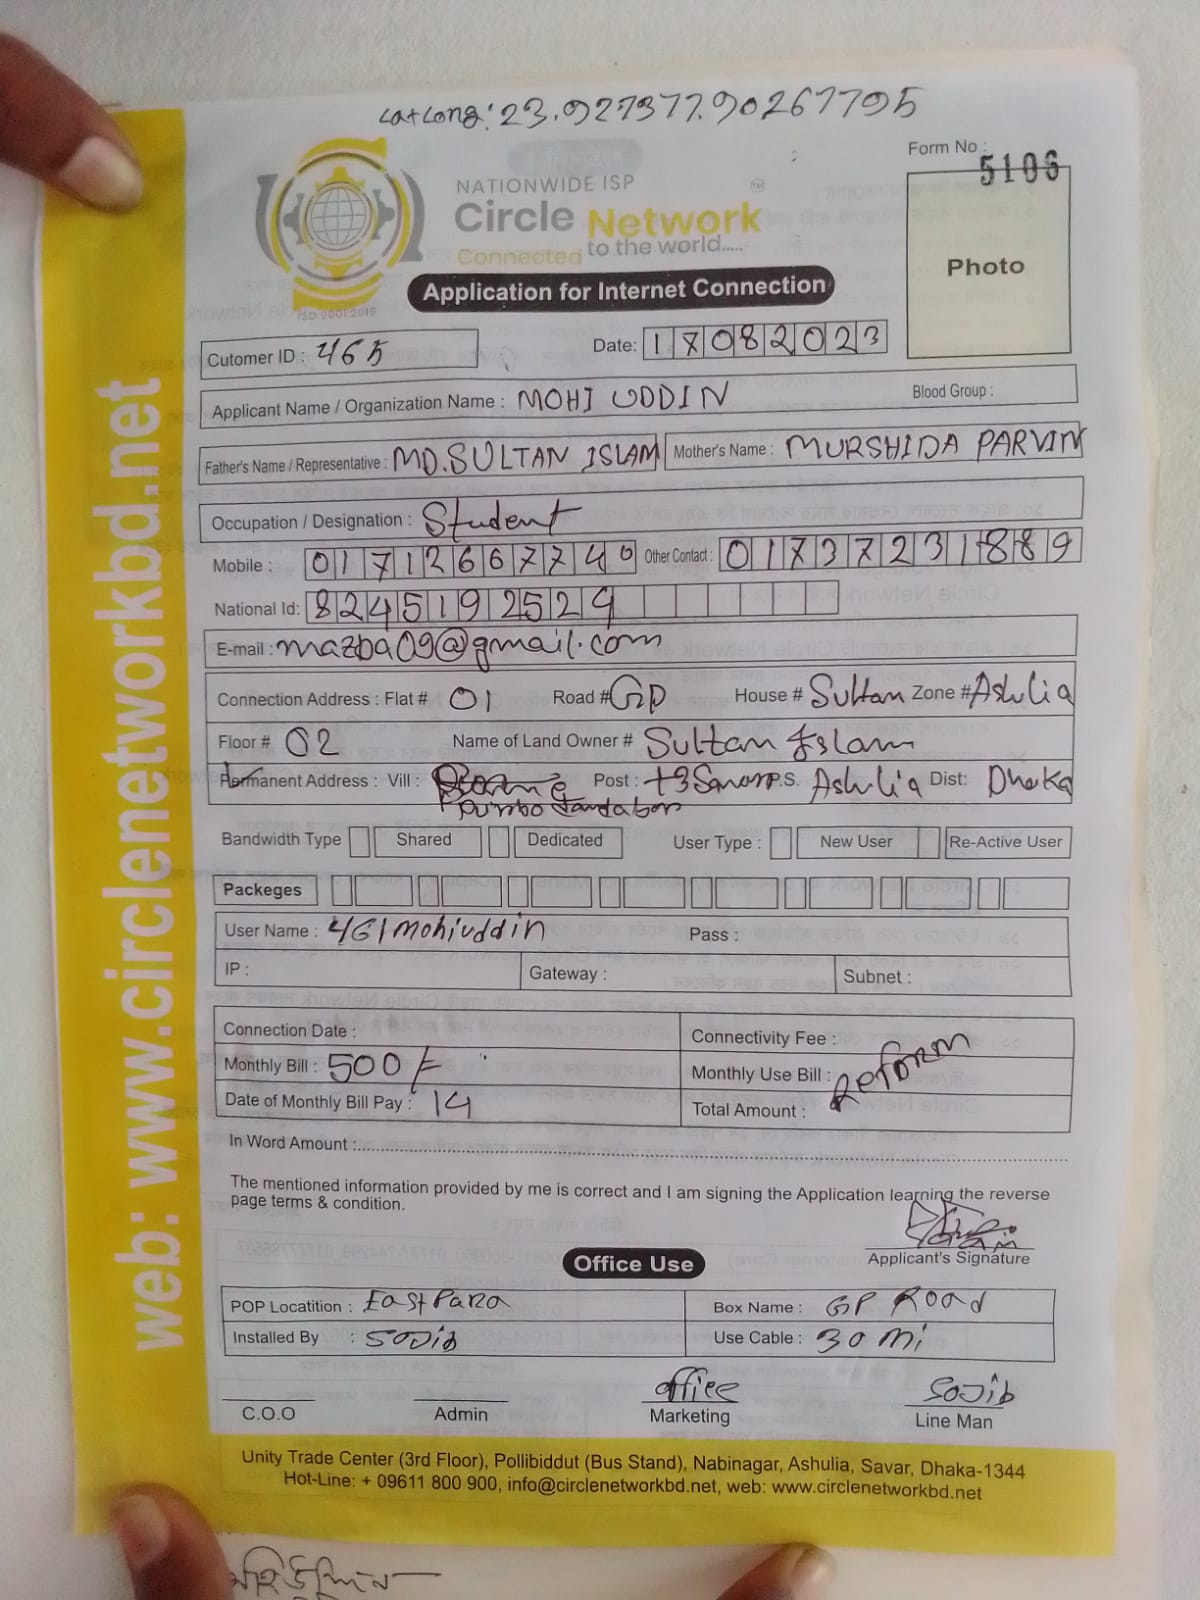 Lat Long: 23.927377.90267795
Form No : 5106
NATIONWIDE ISP
Circle Network TM
Connected to the world.....
ISO 9001:2015
Photo
Application for Internet Connection
Cutomer ID : 465 Date: 17082023
Applicant Name / Organization Name : MOHI UDDIN Blood Group :
Father's Name / Representative : MD. SULTAN ISLAM Mother's Name : MURSHIDA PARVIN
Occupation / Designation : Student
Mobile : 01712667740 Other Contact : 01737231889
National Id: 8245192529
E-mail : mazba09@gmail.com
Connection Address : Flat # 01 Road # GP House # Sultan Zone # Ashulia
Floor # 02 Name of Land Owner # Sultan Islam
Permanent Address : Vill : Post : P.S. Ashulia Dist: Dhaka
Bandwidth Type Shared Dedicated User Type : New User Re-Active User
Packeges
User Name : 461mohiuddin Pass :
IP : Gateway : Subnet :
Connection Date : Connectivity Fee :
Monthly Bill : 500/= Monthly Use Bill : Reform
Date of Monthly Bill Pay : 14 Total Amount :
In Word Amount :
The mentioned information provided by me is correct and I am signing the Application learning the reverse
page terms & condition.
Applicant's Signature
Office Use
POP Locatition : East Para Box Name : GP Road
Installed By : Sojib Use Cable : 30 mi
office Sojib
C.O.O Admin Marketing Line Man
Unity Trade Center (3rd Floor), Pollibiddut (Bus Stand), Nabinagar, Ashulia, Savar, Dhaka-1344
Hot-Line: + 09611 800 900, info@circlenetworkbd.net, web: www.circlenetworkbd.net
web: www.circlenetworkbd.net
মহিউদ্দিন